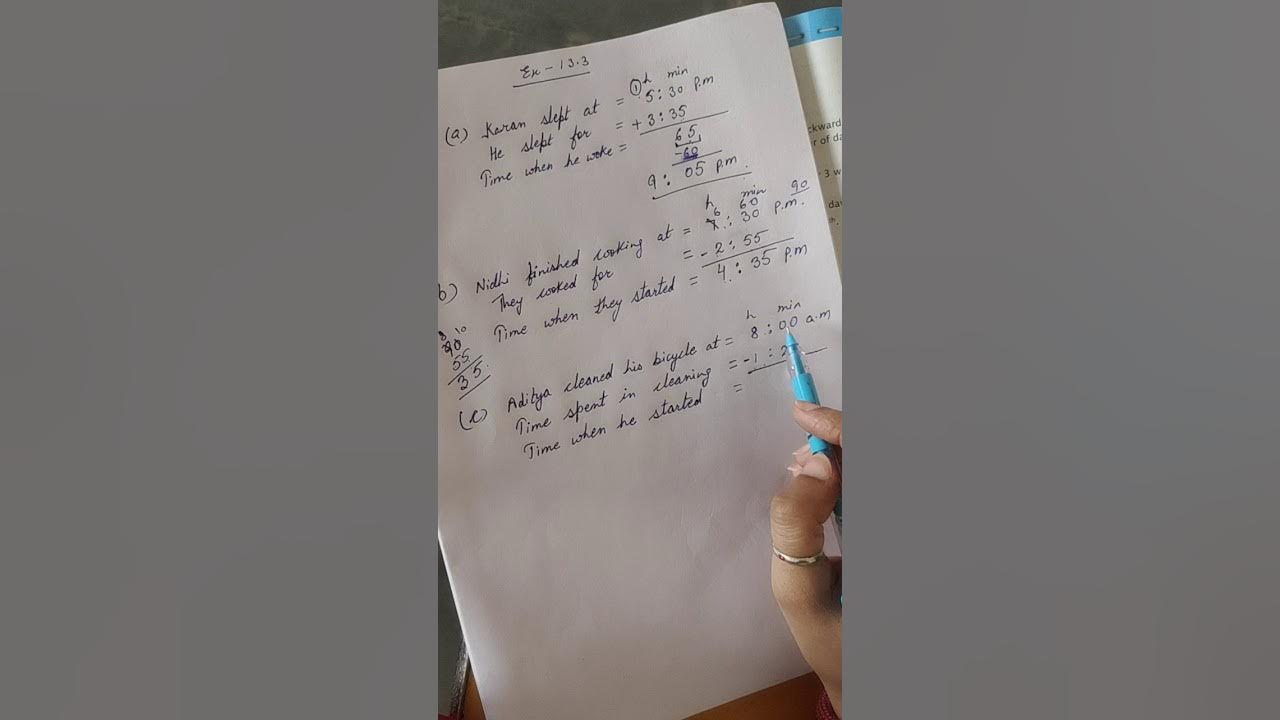 Ex - 13.3
h min
(a) Karan slept at = ① 5:30 p.m
He slept for = + 3:35
Time when he woke = 65
-60
9: 05 p.m.
h min 90
6 60
b) Nidhi finished cooking at = 7: 30 p.m.
They cooked for = - 2:55
Time when they started = 4: 35 p.m
8 10
90
55
35
h min
(c) Aditya cleaned his bicycle at = 8:00 a.m
Time spent in cleaning = -1: 2
Time when he started =
ckward
r of da
3 w
da
th.